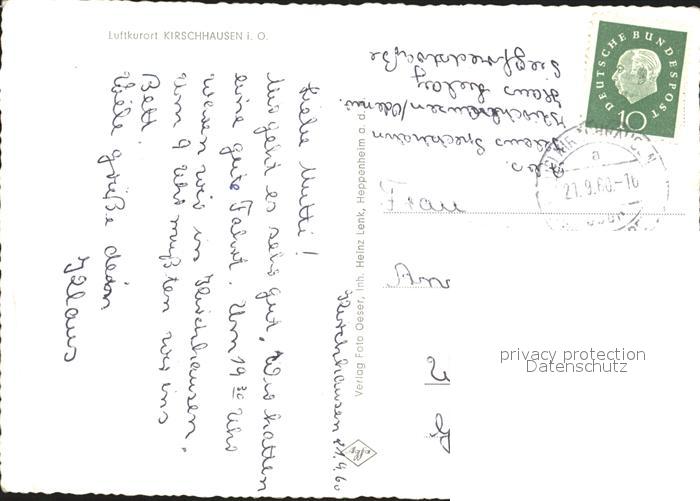 Luftkurort KIRSCHHAUSEN i. O.
Kirschhausen 21.9.60
Liebe Mutti!
Mir geht es sehr gut. Wir hatten
eine gute Fahrt. Um 19 30 Uhr
waren wir in Kirschhausen.
Um 9 Uhr mußten wir ins
Bett.
Viele grüße dein
Klaus
Verlag Foto Oeser, Inh. Heinz Lenk, Heppenheim a. d.
Abs.
Klaus Speckmann
Kirschhausen/Odenw.
Haus
Siegfriedstraße
DEUTSCHE BUNDESPOST
10
a
21.9.60-16
Frau
privacy protection
Datenschutz